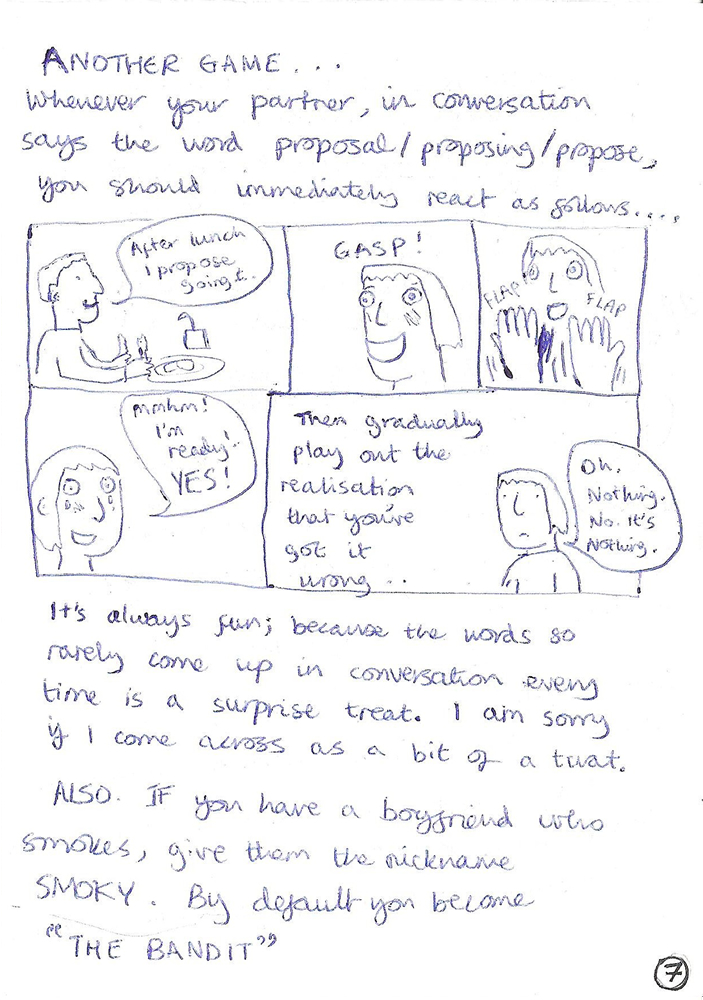 ANOTHER GAME...
Whenever your partner, in conversation
says the word proposal/proposing/propose,
you should immediately react as follows....,
After lunch
I propose
going t..
GASP!
FLAP
FLAP
mmhm!
I'm
ready!
YES!
Then gradually
play out the
realisation
that you've
got it
wrong..
Oh,
Nothing.
No. It's
Nothing.
It's always fun; because the words so
rarely come up in conversation every
time is a surprise treat. I am sorry
if I come across as a bit of a twat.
ALSO. IF you have a boyfriend who
smokes, give them the nickname
SMOKY. By default you become
"THE BANDIT"
7